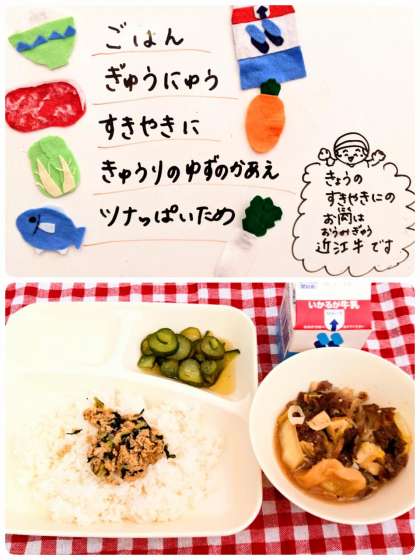 ごはん
ぎゅうにゅう
すきやきに
きゅうりのゆずのかあえ
ツナっぱいため
きょうの
すきやきにの
お肉は
にく
おうみぎゅう
近江牛です
いかるが牛乳